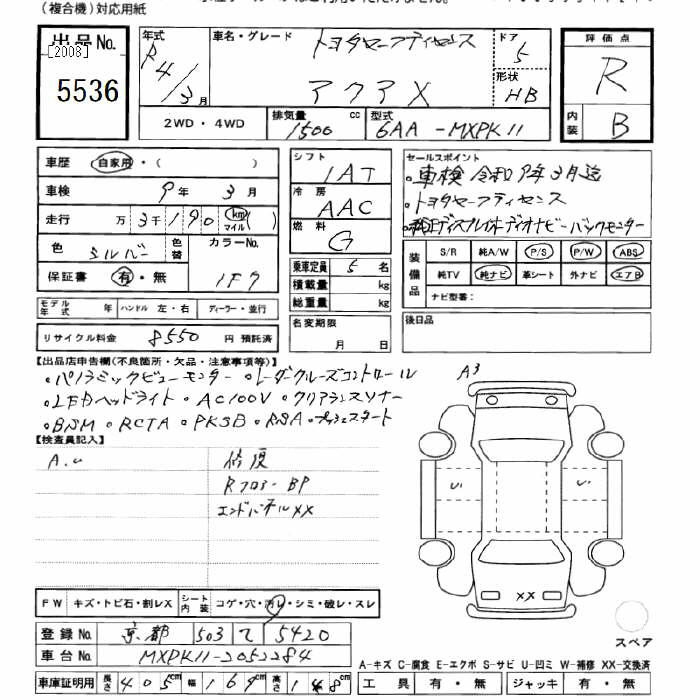 (複合機)対応用紙
出品No.
[2008]
5536
年式 R4/3月
車名・グレード トヨタセーフティセンス
アクア X
ドア 5
形状 HB
評価点
R
内装 B
2WD・4WD
排気量 1500 cc
型式 6AA-MXPK11
車歴 自家用・( )
車検 9年 3月
走行 万 3千190 km マイル( )
色 シルバー 色替
カラーNo. 1F7
保証書 有・無
シフト 1AT
冷房 AAC
燃料 G
乗車定員 5名
積載量 kg
総重量 kg
セールスポイント
・車検 令和9年3月迄
・トヨタセーフティセンス
・純正ディスプレイオーディオナビ・バックモニター
装備品
S/R 純A/W P/S P/W ABS
純TV 純ナビ 革シート 外ナビ エアB
ナビ型番:
モデル年式 年 ハンドル 左・右 ディーラー・並行
名変期限 月 日
後日品
リサイクル料金 8550 円 預託済
【出品店申告欄(不良箇所・欠品・注意事項等)】
・パノラミックビューモニター ・レーダークルーズコントロール
・LEDヘッドライト ・AC100V ・クリアランスソナー
・BSM ・RCTA ・PKSB ・RSA ・プッシュスタート
【検査員記入】
A.U
修復
Rフロア-BP
エンドパネルXX
A3
U
U
XX
スペア
FW キズ・トビ石・割レX シート内装 コゲ・穴・汚レ・シミ・破レ・スレ
登録No. 京都 503 て 5420
車台No. MXPK11-2052284
A-キズ C-腐食 E-エクボ S-サビ U-凹ミ W-補修 XX-交換済
車庫証明用 長さ 405cm 幅 169cm 高さ 148cm
工具 有・無 ジャッキ 有・無